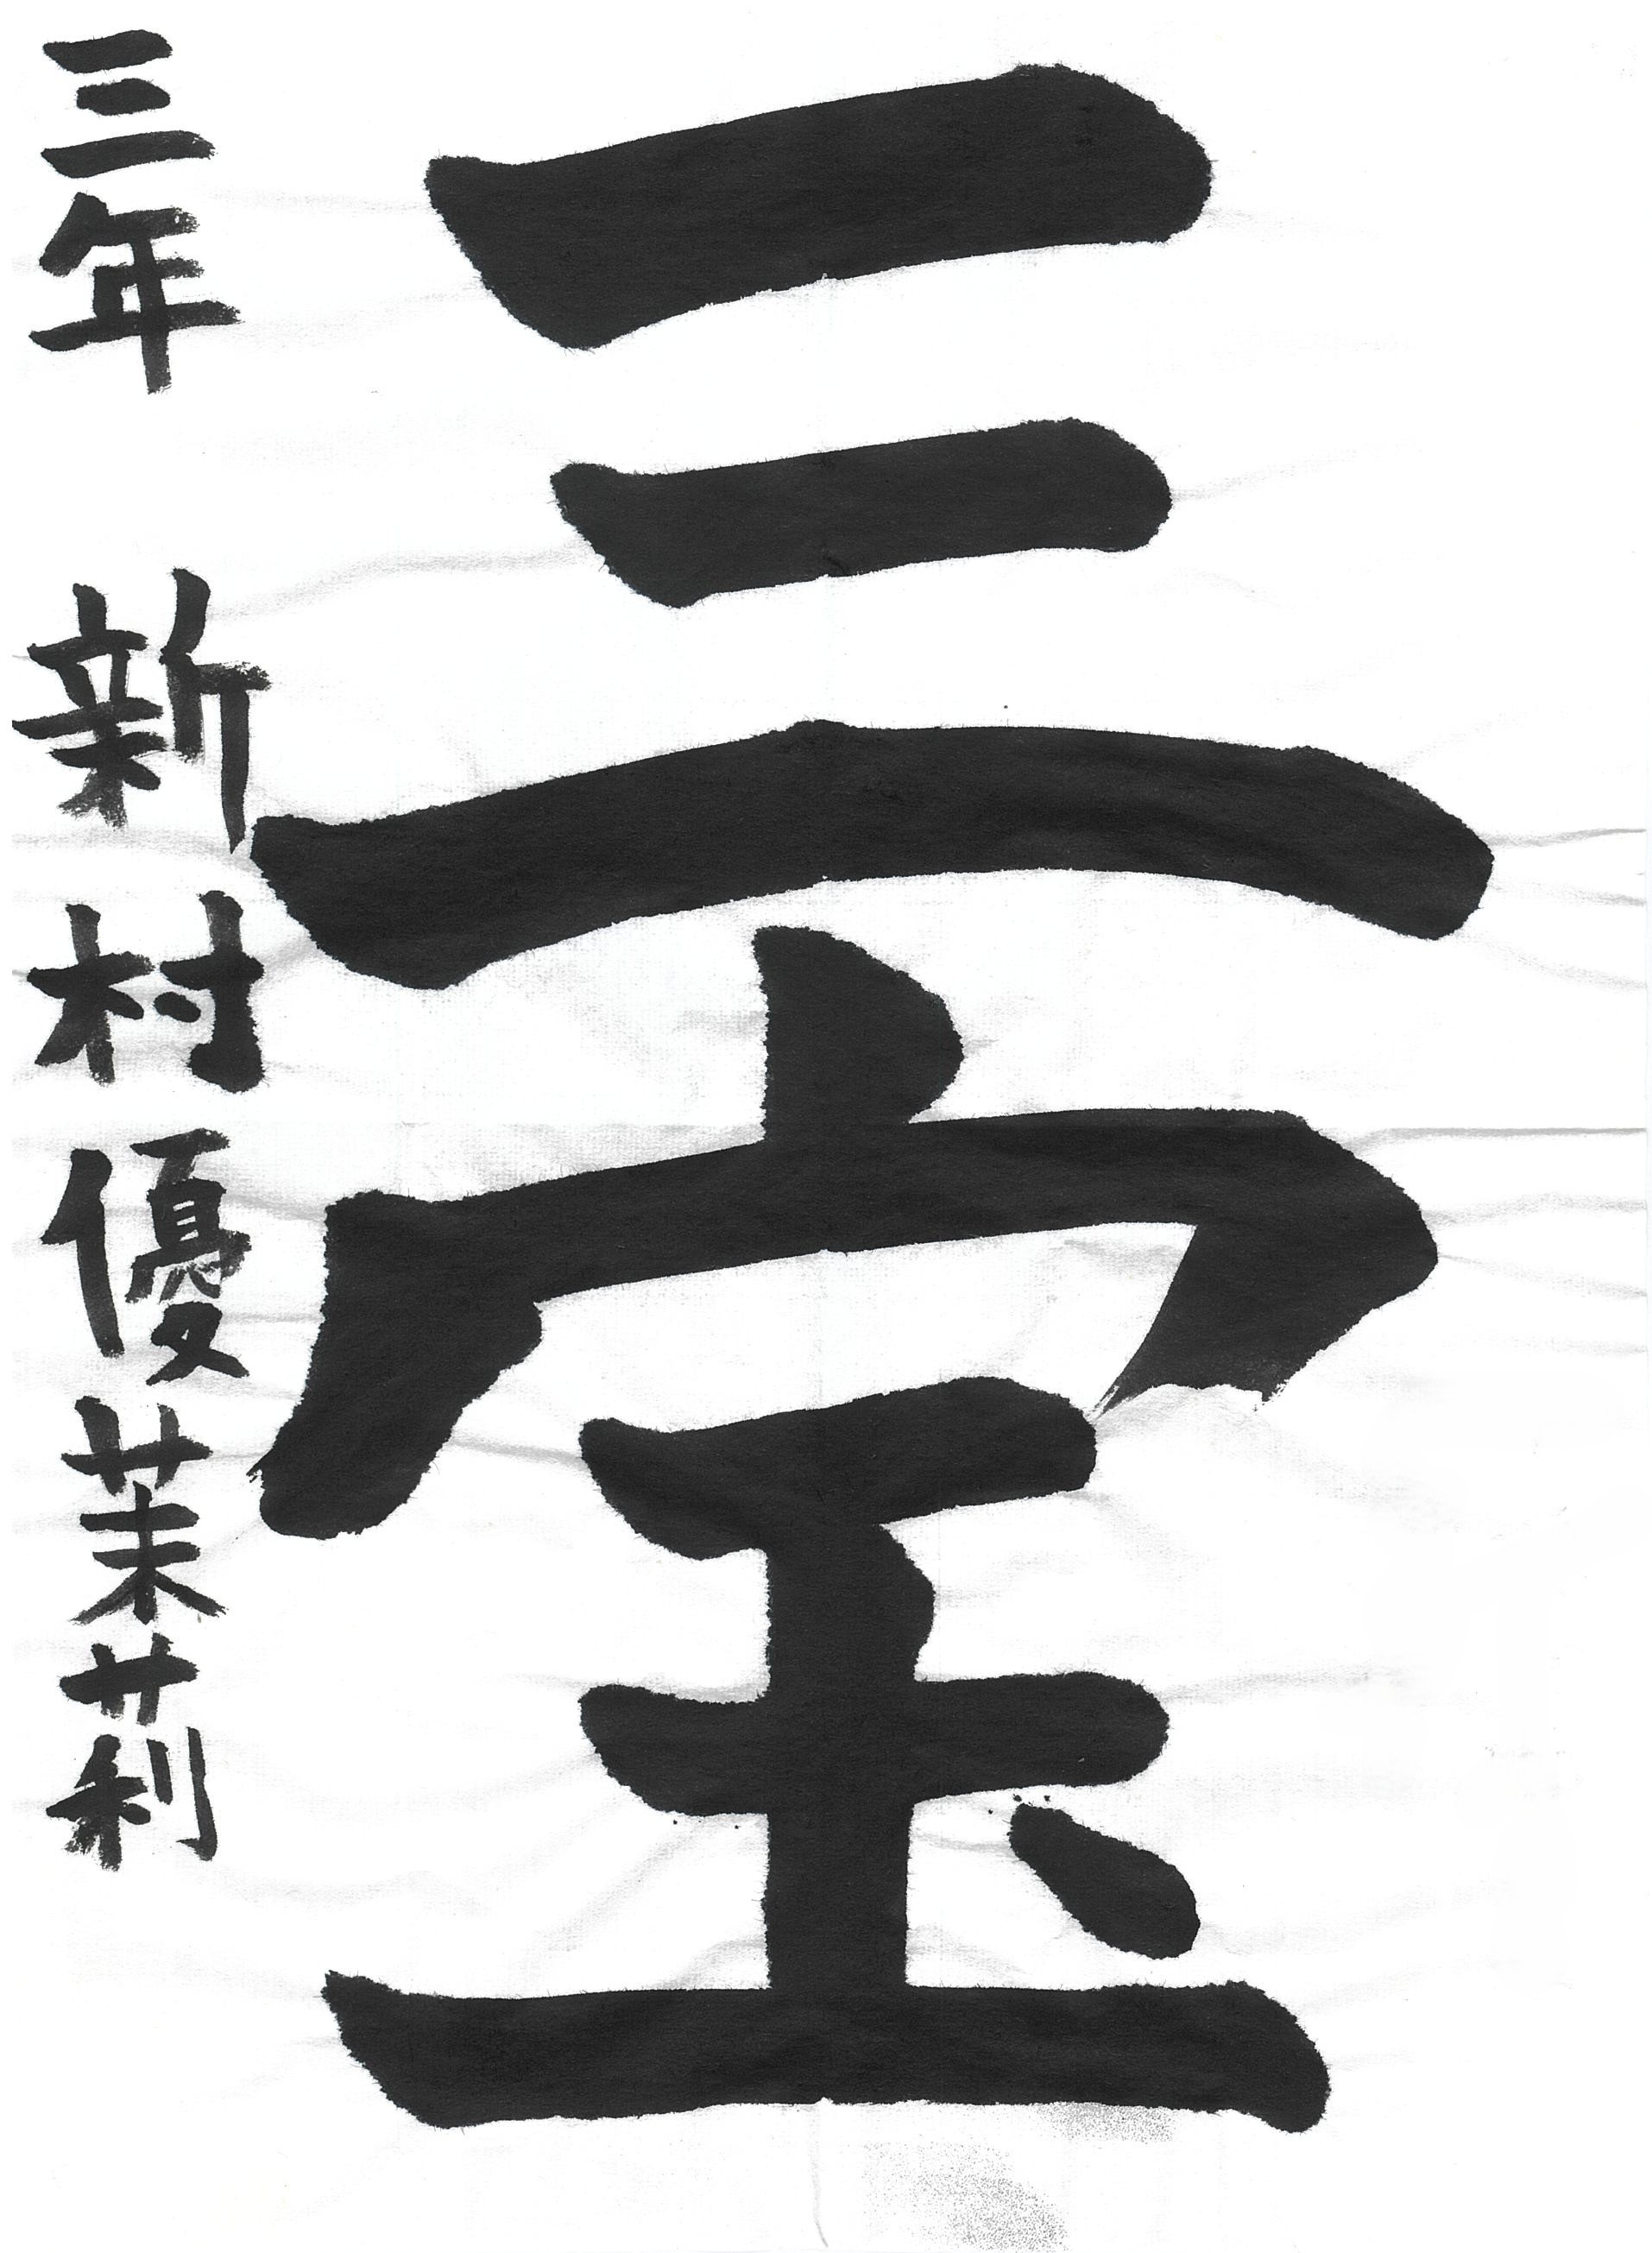 三宝
三年 新村優茉莉